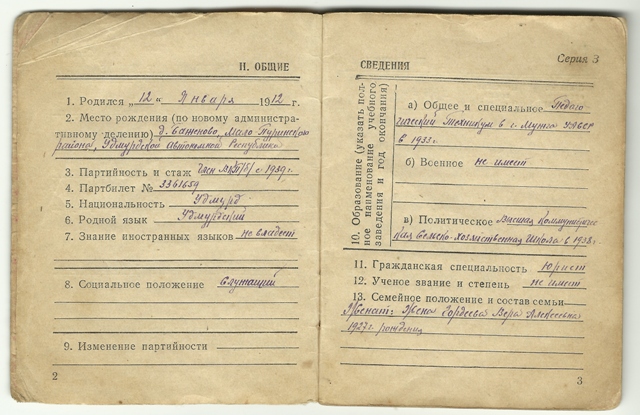 II. ОБЩИЕ
1. Родился „12“ Января 1912 г.
2. Место рождения (по новому административному делению) д. Баженово, Мало-Пургинского
района, Удмурдской автономной Республики
3. Партийность и стаж Член ВКП/б/ с 1939 г.
4. Партбилет № 3361659
5. Национальность Удмурд
6. Родной язык Удмурдский
7. Знание иностранных языков не владеет
8. Социальное положение служащий
9. Изменение партийности
2
СВЕДЕНИЯ
Серия З
10. Образование (указать полное наименование учебного заведения и год окончания)
а) Общее и специальное Педаго-
гический техникум в г. Мунга УАССР
в 1933 г.
б) Военное не имеет
в) Политическое Высшая Коммунистичес-
кая Сельско-Хозяйственная Школа в 1938 г.
11. Гражданская специальность юрист
12. Ученое звание и степень не имеет
13. Семейное положение и состав семьи
Женат: Жена Гордеева Вера Алексеевна
1927 г. рождения
3